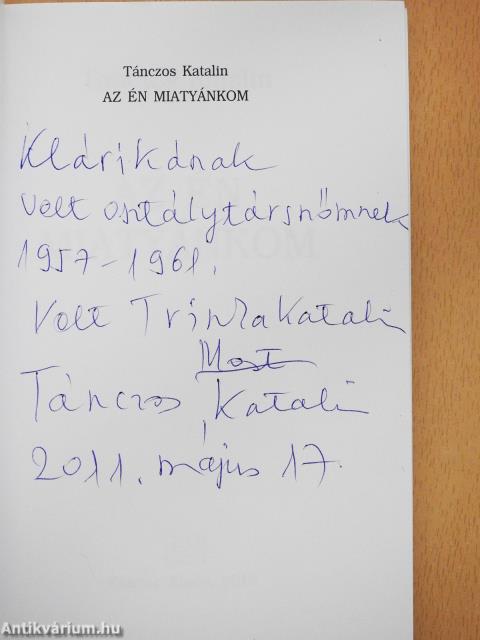 Tánczos Katalin
AZ ÉN MIATYÁNKOM
Klárikának
volt osztálytársnőmnek
1957-1961.
Volt Katalin
Most
Tánczos Katalin
2011. május 17.
Antikvárium.hu